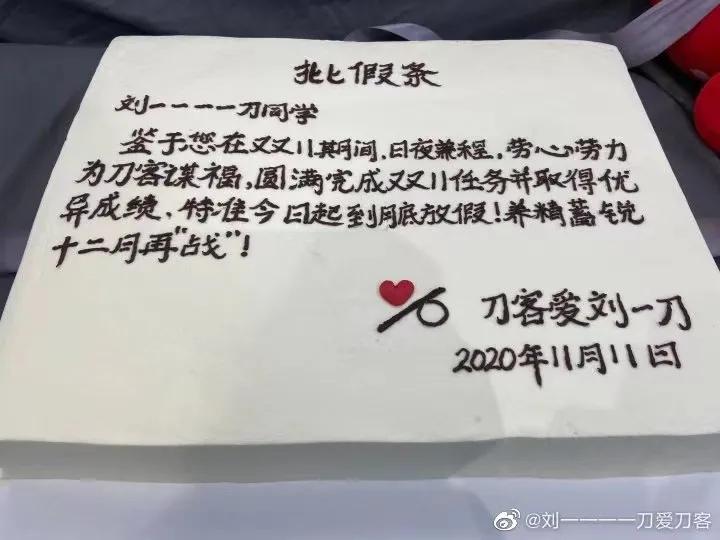 批假条
刘一一一一刀同学
鉴于您在双双11期间,日夜兼程,劳心劳力
为刀客谋福,圆满完成双双11任务并取得优
异成绩,特准今日起到月底放假!养精蓄锐
十二月再"战"!
刀客爱刘一刀
2020年11月11日
@刘一一一一刀爱刀客